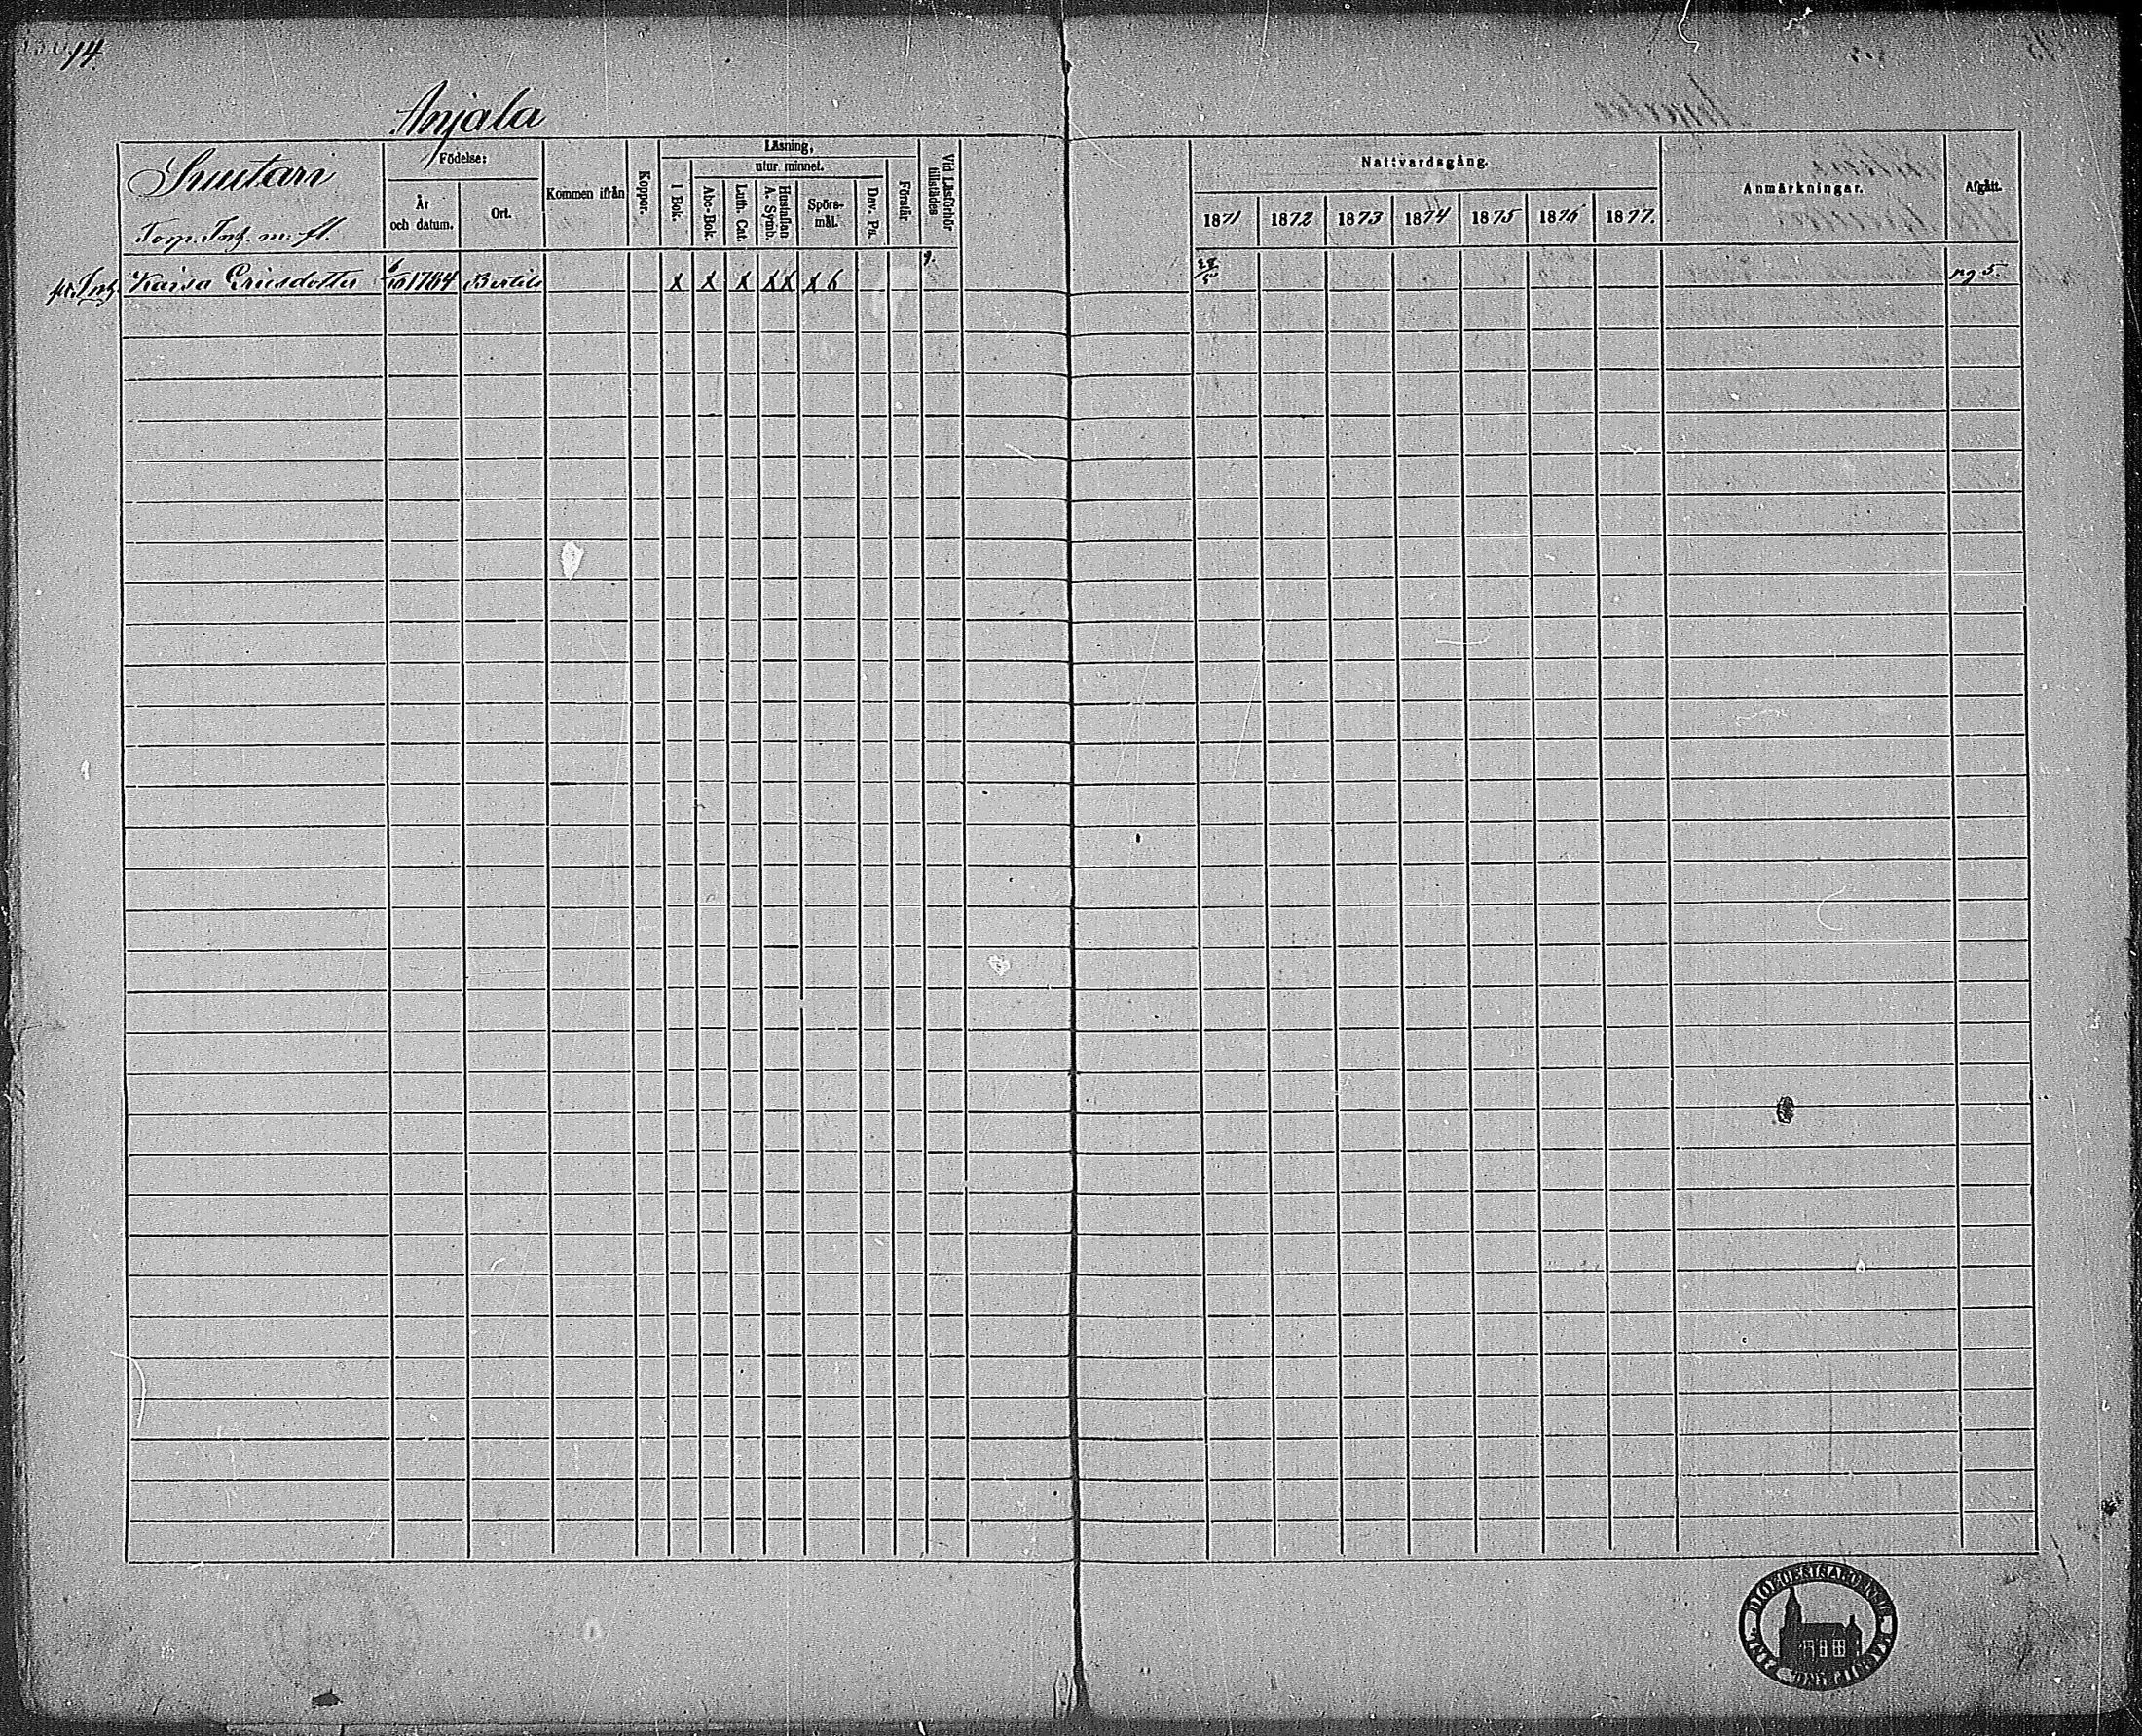 14.
Anjala
Suutari
Torp. Inh. m. fl.
Födelse:
År och datum.
Ort.
Kommen ifrån
Koppor.
Läsning,
I Bok.
utur minnet.
Abc-Bok.
Luth. Cat.
Hustaflan A. Symb.
Spörs-mål.
Dav. Ps.
Förstår.
Vid Läsförhör tillstädes
Nattvardsgång.
1871 1872 1873 1874 1875 1876 1877.
Anmärkningar.
Afgått.
Inh. Kaisa Ericsdotter 6/10 1784 Bertils x x x x x x 6 28/5 pg 5.